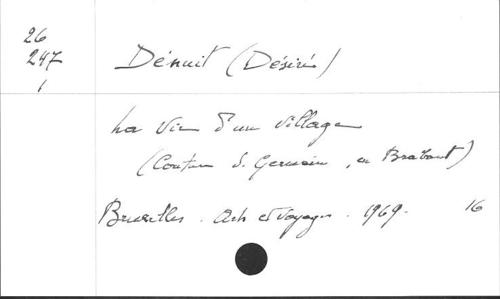 26
247
1
Dénuit (Désiré)
La Vie d'un village
(Couture St. Germain, en Brabant)
Bruxelles. Arts et Voyages. 1969. 16